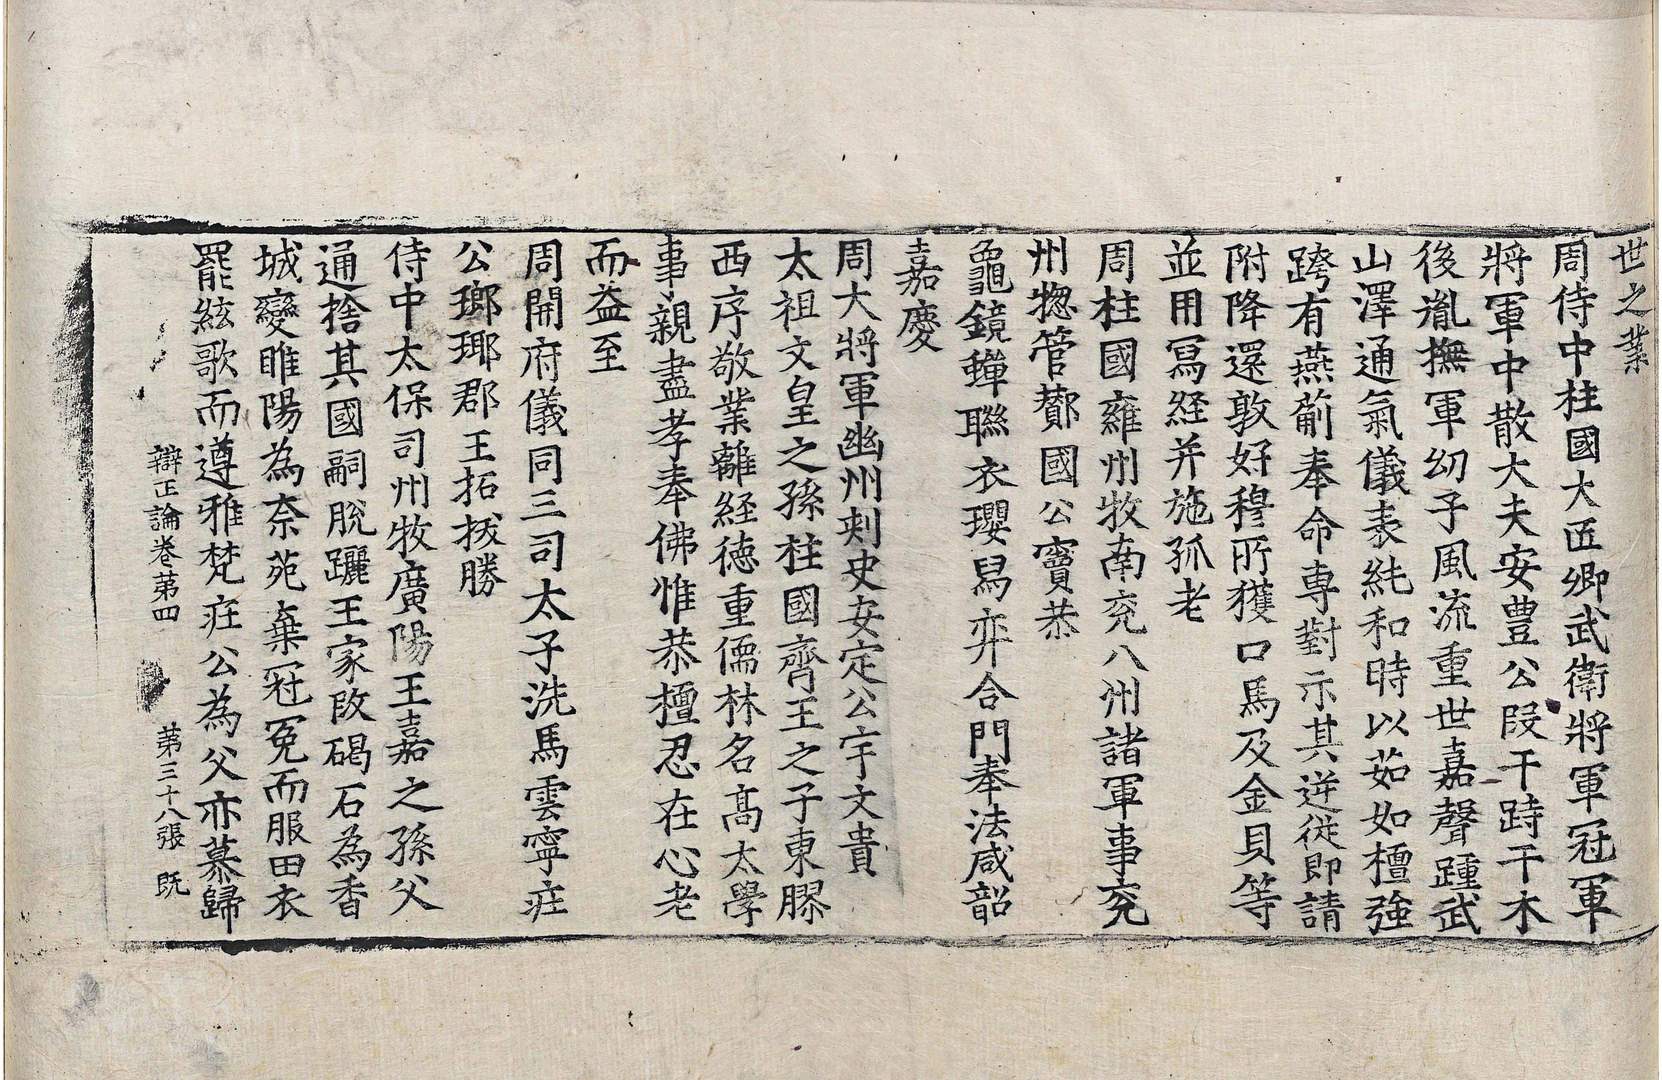 世之業
周侍中柱國大匠卿武衛將軍冠軍
將軍中散大夫安豊公段干踌干木
後胤撫軍幼子風流重世嘉聲踵武
山澤通氣儀表純和時以茹如檀強
跨有燕薊奉命専對示其逆従即請
附降還敦好穆所獲口馬及金貝等
並用冩經并施孤老
周柱國雍州牧南兖八州諸軍事兖
州揔管酇國公竇恭
龜鏡蟬聯衣瓔舄弈合門奉法咸韶
嘉慶
周大將軍幽州刺史安定公宇文貴
太祖文皇之孫柱國齊王之子東膠
西序敬業離経徳重儒林名髙太學
事親盡孝奉佛惟恭檀忍在心老
而益至
周開府儀同三司太子洗馬雲寧㽵
公瑯瑘郡王拓拔勝
侍中太保司州牧廣陽王嘉之孫父
通捨其國嗣脱躧王家改碣石為香
城變睢陽為奈苑棄冠冕而服田衣
罷絃歌而遵雅梵㽵公為父亦慕歸
辯正論卷第四　第三十八張　既